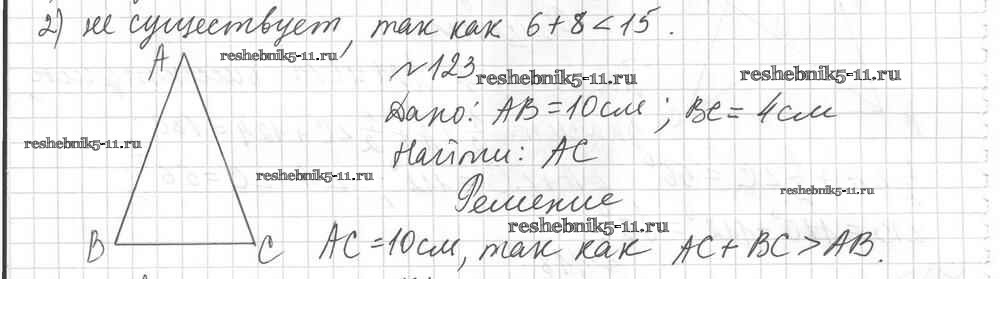 2) не существует, так как 6+8<15.
A
reshebnik5-11.ru
№123
reshebnik5-11.ru
reshebnik5-11.ru
Дано: AB=10см; BC=4см
reshebnik5-11.ru
Найти: AC
reshebnik5-11.ru
reshebnik5-11.ru
Решение
reshebnik5-11.ru
B
C
AC=10см, так как AC+BC>AB.